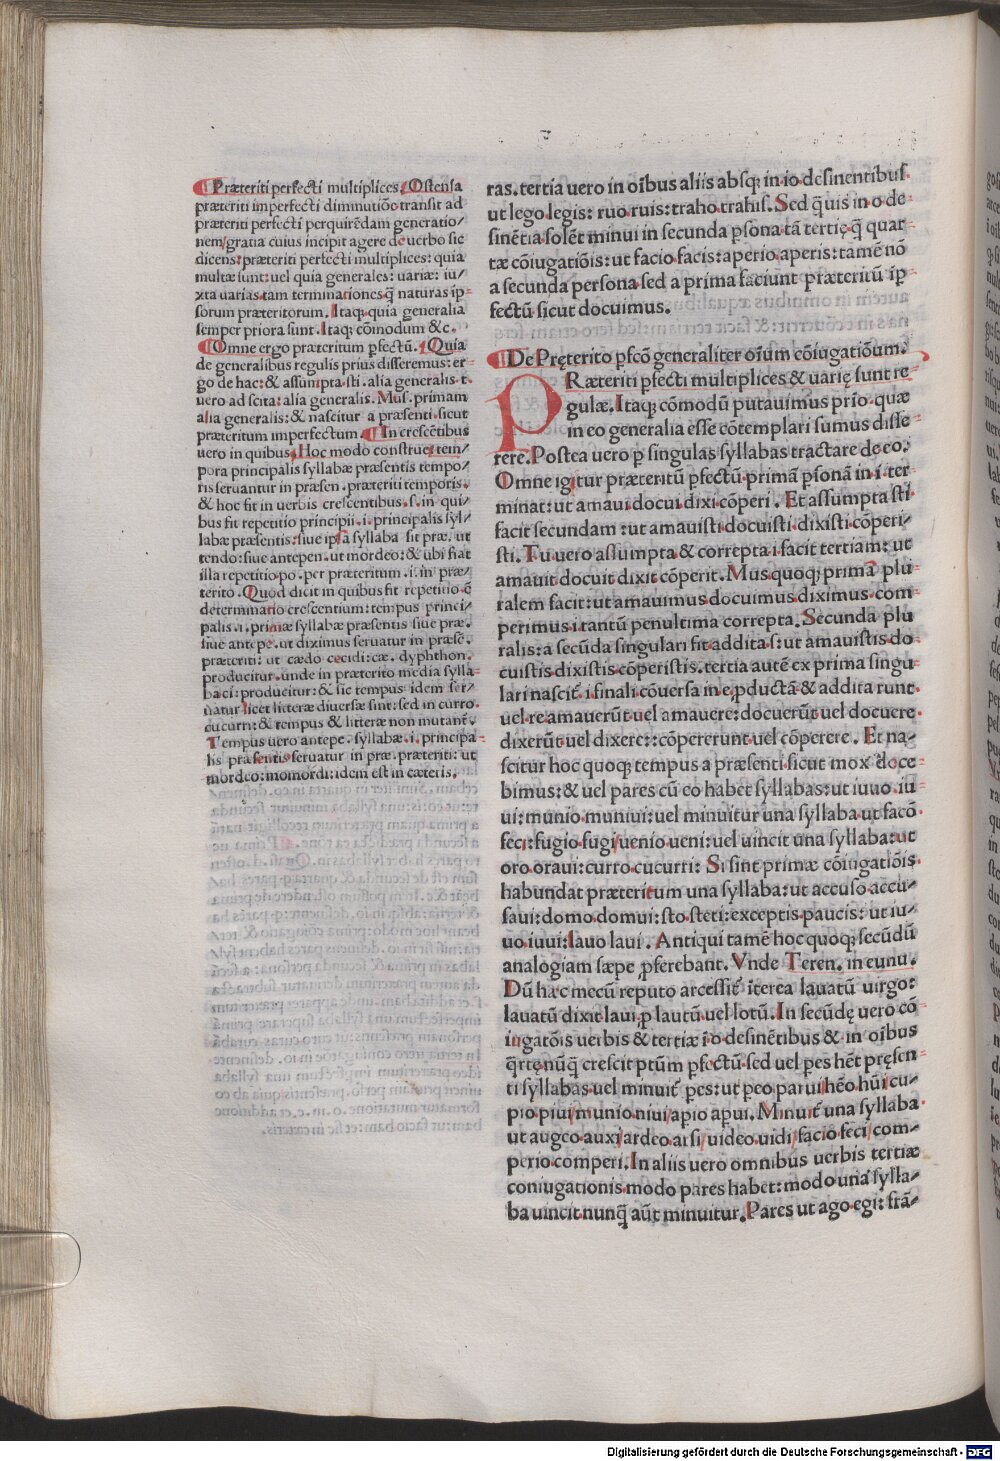 Præteriti perfecti multiplices. Ostensa
præteriti imperfecti diminutiõe transit ad
præteriti perfecti perquirẽdam generatio/
nem/gratia cuius incipit agere de uerbo sic
dicens: præteriti perfecti multiplices: quia
multæ sunt: uel quia generales: uariæ: iu/
xta uarias tam terminationes q̃ naturas ip-
sorum præteritorum. Itaq; quia generalia
semper priora sunt. Itaq; cõmodum &c.
Omne ergo præteritum ꝑfectũ. Quia
de generalibus regulis prius disseremus: er-
go de hac: & assumpta.sti. alia generalis.t.
uero ad scita: alia generalis. Mus. primam
alia generalis: & nascitur a præsenti sicut
præteritum imperfectum. In crescẽtibus
uero in quibus. Hoc modo construe: tem/
pora principalis syllabæ præsentis tempo/
ris seruantur in præsen. præteriti temporis.
& hoc fit in uerbis crescentibus .s. in qui/
bus fit repetitio principii .i. principalis syl/
labæ præsentis: siue ipsa syllaba sit præ. ut
tendo: siue antepen. ut mordeo: & ubi fiat
illa repetitio po. per præteritum .i. in præ/
terito. Quod dicit in quibus fit repetitio. ẽ
determinatio crescentium: tempus princi/
palis .i. primæ syllabæ præsentis siue præ.
siue antepe. ut diximus seruatur in præsẽ.
præteriti: ut cædo cecidi: cæ. dyphthon.
producitur. unde in præterito media sylla-
ba ci: producitur: & sic tempus idem ser/
uatur licet litteræ diuersæ sint: sed in curro
cucurri: & tempus & litteræ non mutant̃.
Tempus uero antepe. syllabæ .i. principa-
lis præsentis seruatur in præ. præteriti: ut
mordeo: momordi: idem est in cæteris.
ras. tertia uero in oĩbus aliis absq; in .io. desinentibus.
ut lego legis: ruo ruis: traho trahis. Sed q̃uis in o de-
sinẽtia solẽt minui in secunda ꝑsona tã tertię q̃ quar-
tæ cõiugatiõis: ut facio facis: aperio aperis: tamẽ nõ
a secunda persona sed a prima faciunt præteritũ ip̃-
fectũ sicut docuimus.
De Pręterito ꝑfcõ generaliter oĩum cõiugatiõum.
PRæteriti ꝑfecti multiplices & uarię sunt re-
gulæ. Itaq; cõmodũ putauimus prĩo quæ
in eo generalia esse cõtemplari sumus disse-
rere. Postea uero ꝑ singulas syllabas tractare de eo.
Omne igitur præteritũ ꝑfectũ primã ꝑsonã in .i. ter-
minat: ut amaui docui dixi cõperi. Et assumpta sti
facit secundam: ut amauisti docuisti dixisti cõperi/
sti. Tu uero assumpta & correpta i facit tertiam: ut
amauit docuit dixit cõperit. Mus quoq; primã plu
ralem facit: ut amauimus docuimus diximus com-
perimus i tantũ penultima correpta. Secunda plu
ralis: a secũda singulari fit addita .s: ut amauistis do-
cuistis dixistis cõperistis. tertia autẽ ex prima singu-
lari nascit̃ .i finali cõuersa in e, ꝓductã & addita runt
uel re amauerũt uel amauere: docuerũt uel docuere.
dixerũt uel dixere:: cõpererunt uel cõperere. Et na-
scitur hoc quoq; tempus a præsenti sicut mox doce
bimus: & uel pares cũ eo habet syllabas: ut iuuo iu
ui: munio muniui: uel minuitur una syllaba ut facõ-
feci: fugio fugi/uenio ueni: uel uincit una syllaba: ut
oro oraui: curro cucurri: Si sint primæ cõiugatiõis
habundat præteritum una syllaba: ut accuso accu-
saui: domo domui: sto steti: exceptis paucis: ut iu/
uo iuui: lauo laui. Antiqui tamẽ hoc quoq; secũdũ
analogiam sæpe ꝓferebant. Vnde Teren. in eunu.
Dũ hæc mecũ reputo arcessit̃ iterea lauatũ uirgo:
lauatũ dixit laui, ꝓ lautũ uel lotũ. In secũdę uero cõ
iugatõis uerbis & tertiæ ĩ o desinẽtibus & in oĩbus
q̃rtę nũq̃ crescit p̃tum ꝑfectũ sed uel ꝑes hẽt pręsen-
ti syllabas uel minuit̃ ꝑes: ut ꝑeo parui/hẽo hũi cu-
pio piui/munio niui/aꝑio aꝑui. Minuit̃ una syllaba.
ut augeo auxi/ardeo arsi/uideo uidi/facio feci/com-
perio comperi. In aliis uero omnibus uerbis tertiæ
coniugationis modo pares habet: modo unã sylla-
ba uincit nunq̃ aũt minuitur. Pares ut ago egi: frã-
Digitalisierung gefördert durch die Deutsche Forschungsgemeinschaft - DFG